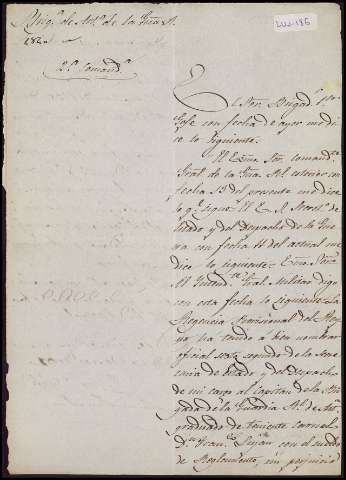 Brig.ª de Art.ª de la Gua R.¹
LUJ-186
184
2.ª Comand.ª
El Sor. Brigad.r 1.er
Gefe con fecha de ayer me di-
ce lo siguiente.
El Exmo Sor. Comand.te
Gral. de la Gua. Rl. esterior con
fecha 15 del presente me dice
lo q.e sigue. El E. S. Secret.º de
Estado y del Despacho de la Guer-
ra con fecha 14 del actual me
dice lo siguiente. Exmo Sor.
Al Intend.te Gral. Militar digo
con esta fecha lo siguiente. La
Regencia Provisional del Rey-
no ha tenido á bien nombrar
oficial segundo de la
de Estado y del Despacho
de mi cargo al Capitan de la Bri-
gada de la Guardia Rl. de Art.ª
graduado de Teniente Coronel
D.n Fran.co Luján con el sueldo
de Reglamento, sin perjuicio